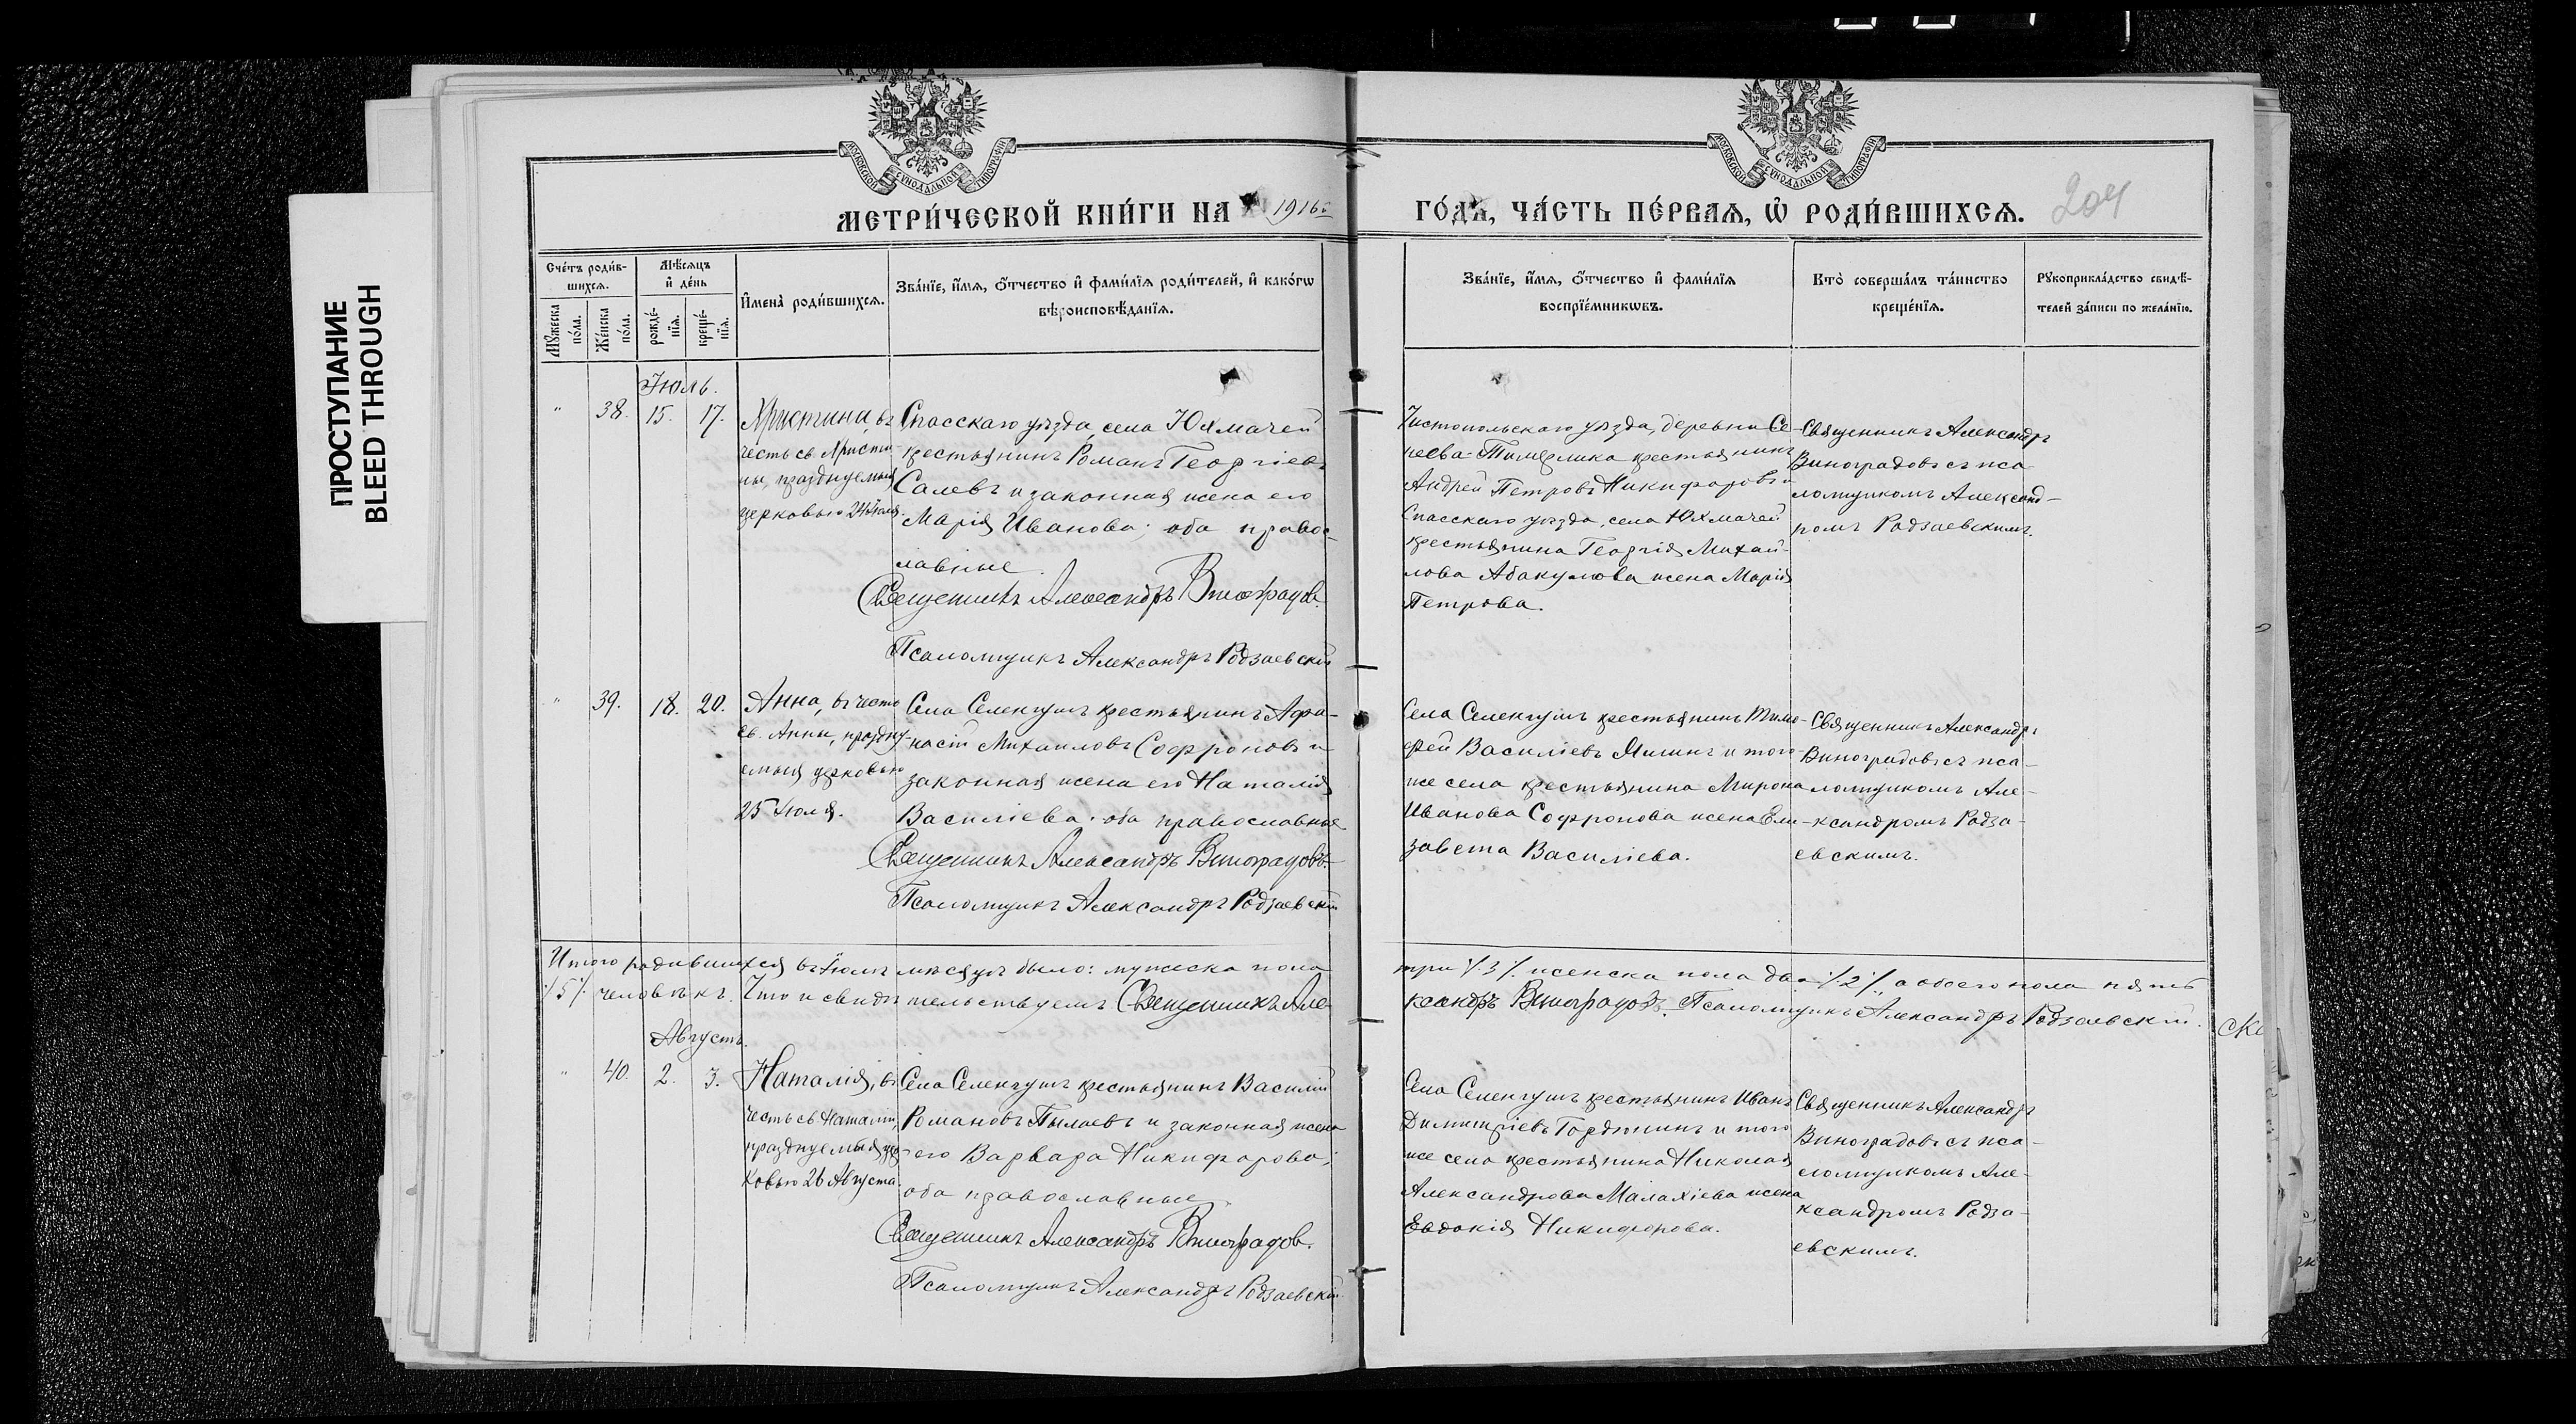 ПРОСТУПАНИЕ
BLEED THROUGH
МОСКОВСКОЙ СѴНОДАЛЬНОЙ ТИПОГРАФІИ
МОСКОВСКОЙ СѴНОДАЛЬНОЙ ТИПОГРАФІИ
МЕТРИ́ЧЕСКОЙ КНИ́ГИ НА 1916 г. ГО́ДЪ, ЧА́СТЬ ПЕ́РВАѦ, Ѽ РОДИ́ВШИХСѦ.
204
Сче́тъ роди́в-
шихсѧ.
Мѹжеска
по́ла.
Же́нска
по́ла.
Мѣ́сѧцъ
и҆ де́нь
рожде́-
нїѧ.
креще́-
нїѧ.
И҆мена̀ роди́вшихсѧ.
Зва́нїе, и҆́мѧ, ѻ҆́тчество и҆ фами́лїѧ роди́телей, и҆ како́гѡ
вѣроисповѣ́данїѧ.
Зва́нїе, и҆́мѧ, ѻ҆́тчество и҆ фами́лїѧ
воспрїе́мникѡвъ.
Кто̀ соверша́лъ та́инство
креще́нїѧ.
Рꙋкоприкла́дство свидѣ́-
телей за́писи по жела́нїю.
Іюль.
" 38. 15. 17.
Христина, въ
честь св. Христи-
ны, празднуемыя
церковью 24 Іюля
Спасскаго уѣзда, села Юхмачей
крестьянинъ Романъ Георгіевъ
Салевъ и законная жена его
Марія Иванова; оба правос-
лавные.
Священникъ Александръ Виноградов
Псаломщикъ Александръ Родзаевскій
Чистопольскаго уѣзда, деревни Се-
неева-Тимерлика крестьянинъ
Андрей Петровъ Никифоровъ и
Спасскаго уѣзда, села Юхмачей
крестьянина Георгія Михай-
лова Абакумова жена Марія
Петрова.
Священникъ Александръ
Виноградовъ съ пса-
ломщикомъ Александ-
ромъ Родзаевскимъ.
" 39. 18. 20.
Анна, въ честь
св. Анны, праздну-
емыя церковью
25 Іюля.
Села Селенгушъ крестьянинъ Афа-
насій Михаиловъ Софроновъ и
законная жена его Наталія
Василіева; оба православные
Священникъ Александръ Виноградовъ
Псаломщикъ Александръ Родзаевскій
Села Селенгушъ крестьянинъ Тимо-
фей Василіевъ Яшинъ и того-
же села крестьянина Мирона
Иванова Софронова жена Ели-
завета Василіева.
Священникъ Александръ
Виноградовъ съ пса-
ломщикомъ Але-
ксандромъ Родза-
евскимъ.
Итого родившихся въ Іюлѣ мѣсяцѣ было: мужеска пола три /3/. женска пола два /2/, а обоего пола пять
/5/. человѣкъ. Что и свидѣтельствуемъ Священникъ Александръ Виноградовъ. Псаломщикъ Александръ Родзаевскій.
Августъ.
" 40. 2. 3.
Наталія, въ
честь св. Наталіи,
празднуемыя цер-
ковью 26 Августа.
Села Селенгушъ крестьянинъ Василій
Романовъ Пылаевъ и законная жена
его Варвара Никифорова;
оба православные.
Священникъ Александръ Виноградов.
Псаломщикъ Александръ Родзаевскій
Села Селенгушъ крестьянинъ Иванъ
Димитріевъ Гордюнинъ и того
же села крестьянина Николая
Александрова Малахіева жена
Евдокія Никифорова.
Священникъ Александръ
Виноградовъ съ пса-
ломщикомъ Але-
ксандромъ Родза-
евскимъ.